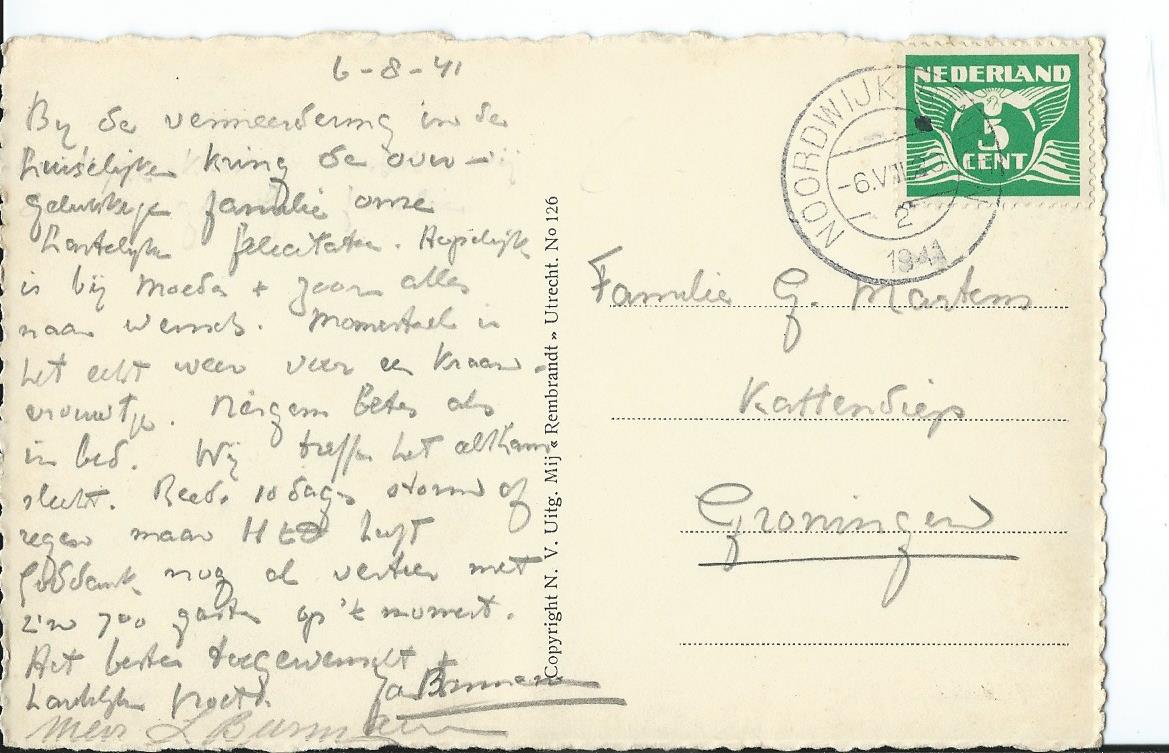 6-8-41
By de vermeerdering in de
huiselijke kring de over-
gelukkige familie onze
hartelijke felicitaties. Hopelijk
is bij Moeder + zoon alles
naar wensch. Momenteel is
het echt weer voor een kraam-
vrouwtje. Nergens beter als
in bed. Wij treffen het althans
slecht. Reeds 10 dagen storm of
regen maar H heeft
Goddank nog al vertier met
z'n 700 gasten op 't moment.
Het beste toegewenscht +
hartelijke groeten. Ja
Mevr L.
Copyright N. V. Uitg. Mij « Rembrandt » Utrecht. No 126
NOORDWIJK
-6.VIII
2
1941
NEDERLAND
5
CENT
Familie G. Martens
Kattendiep
Groningen